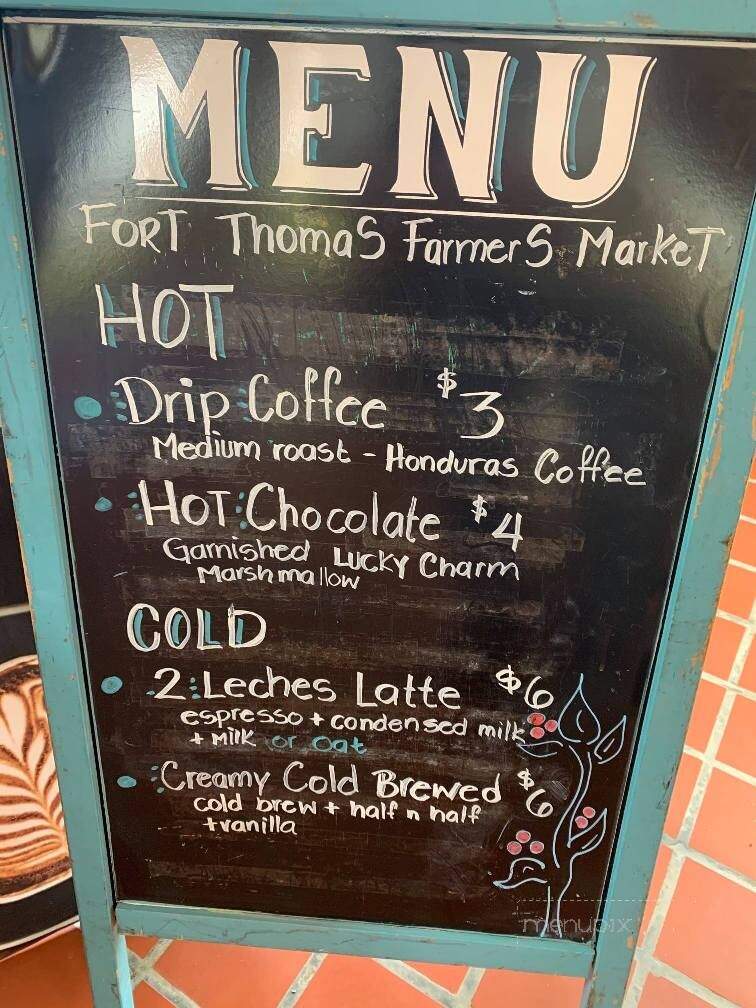 MENU
FORT ThomaS FarmerS MarkeT
HOT
Drip Coffee $3
Medium roast - Honduras Coffee
HOT Chocolate $4
Garnished Lucky Charm
Marshmallow
COLD
2 Leches Latte $6
espresso + condensed milk
+ milk or oat
Creamy Cold Brewed $6
cold brew + half n half
+vanilla
menupix